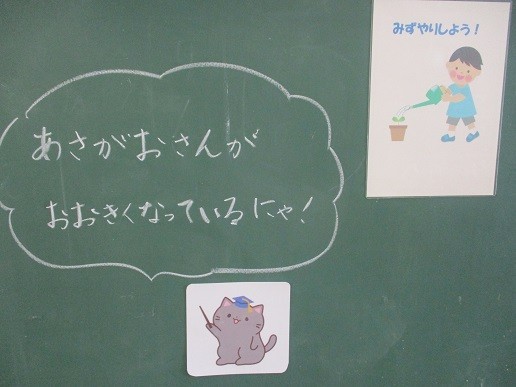 みずやりしよう！
あさがおさんが
おおきくなっているにゃ！